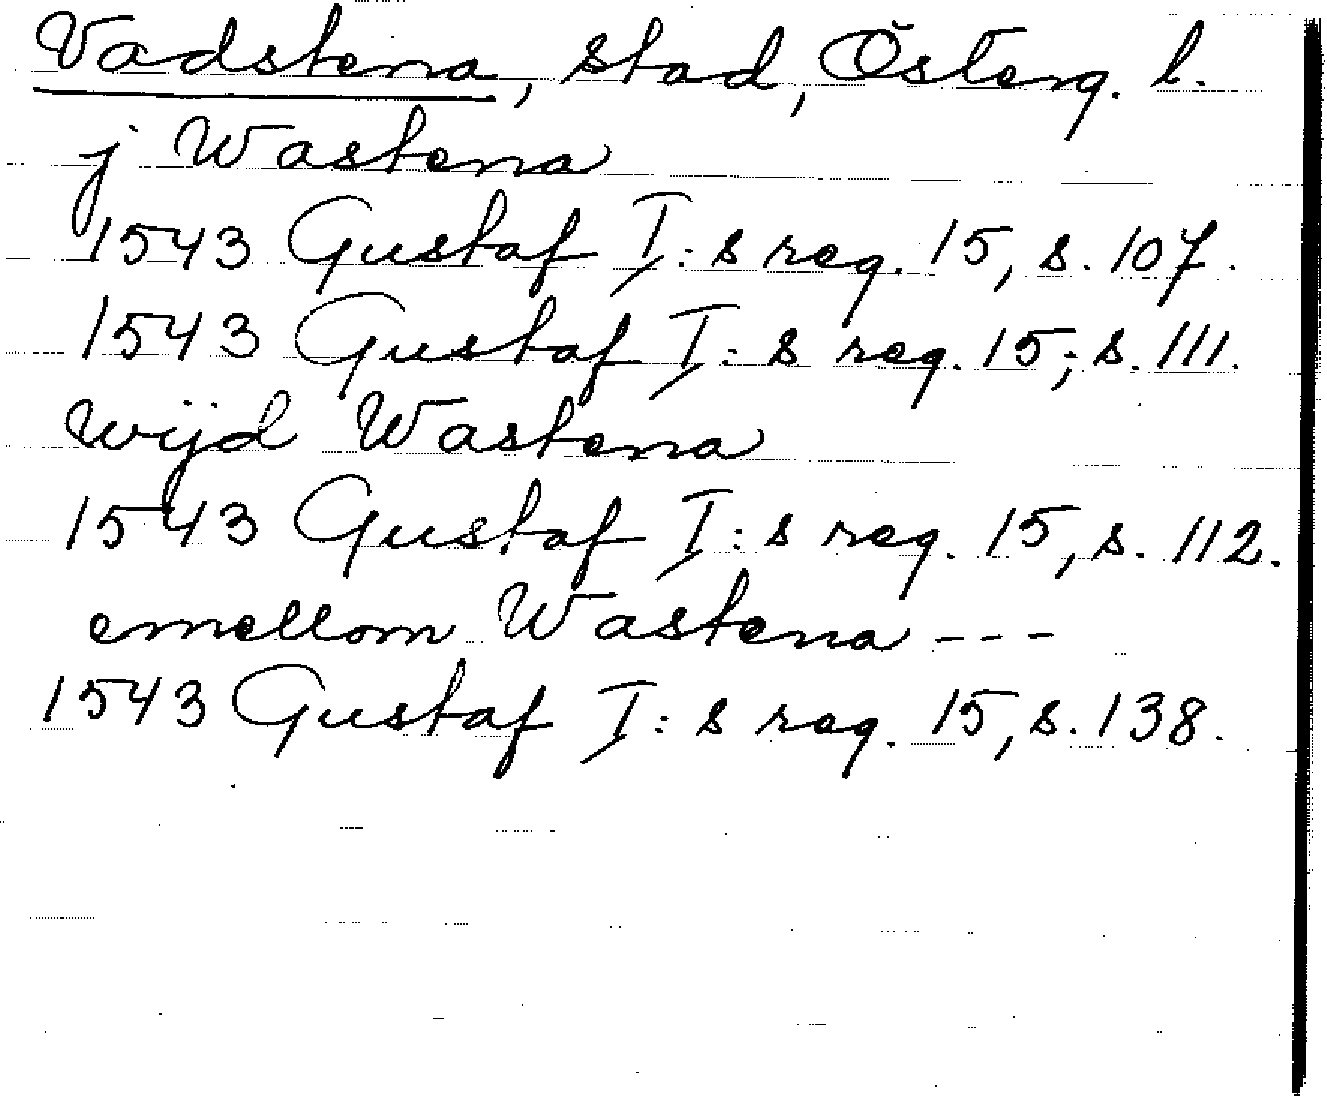 Vadstena, stad, Österg. l.
j Wastena
1543 Gustaf I:s reg. 15, s. 107.
1543 Gustaf I:s reg. 15; s. 111.
wijd Wastena
1543 Gustaf I:s reg. 15, s. 112.
emellom Wastena ---
1543 Gustaf I:s reg. 15, s. 138.